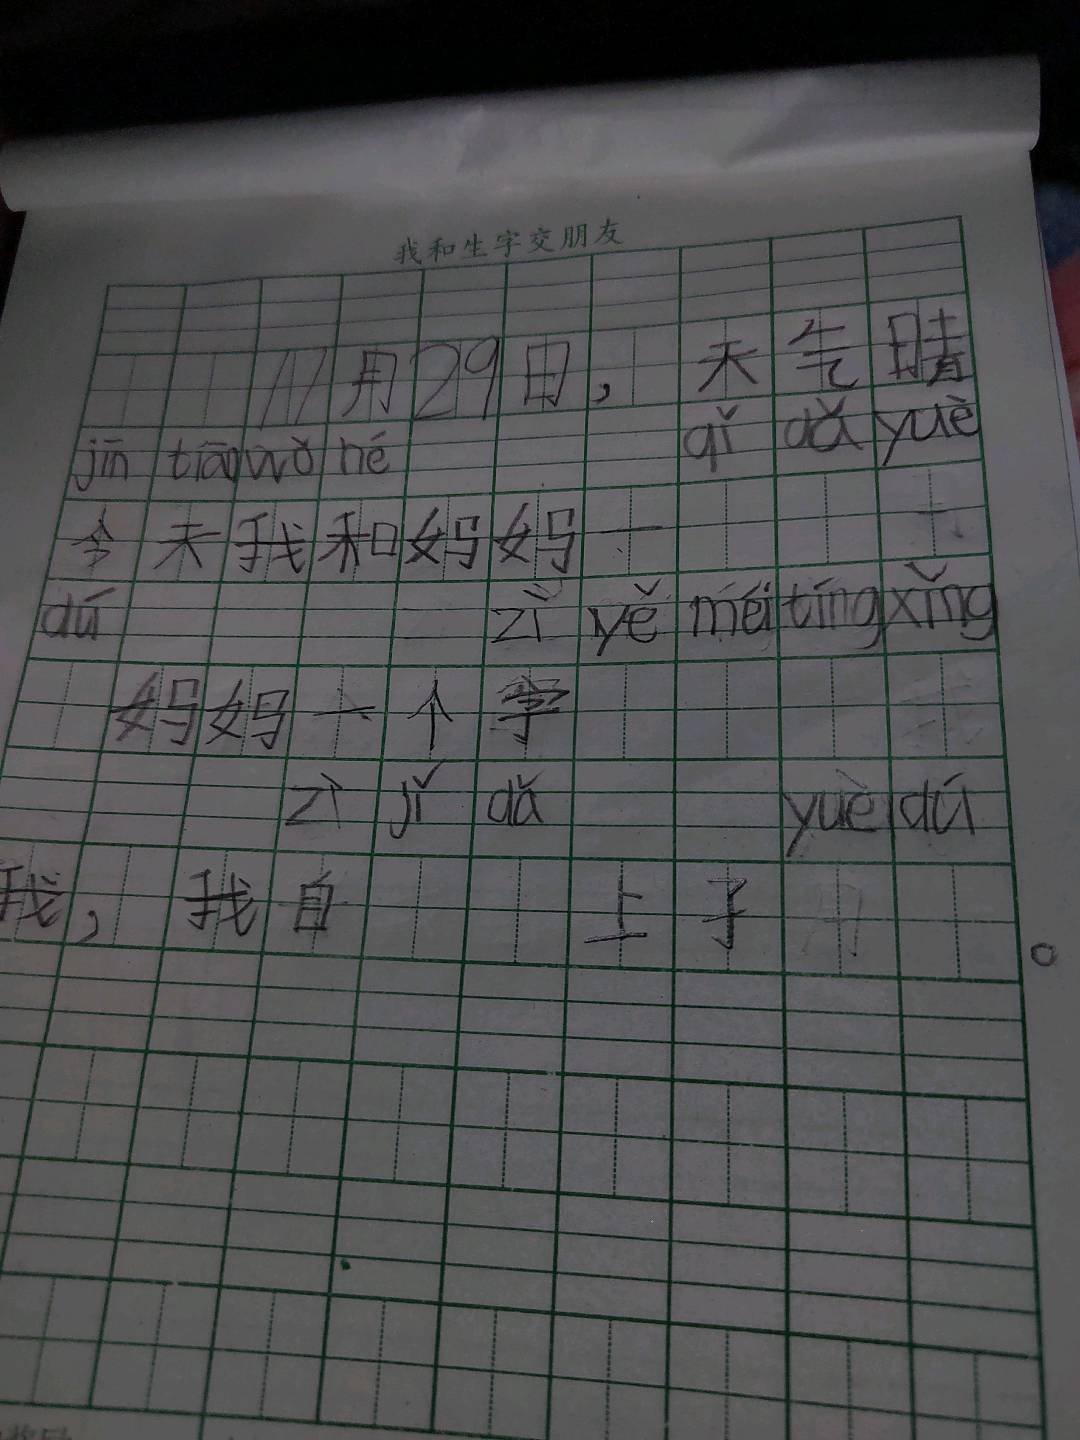 我和生字交朋友
11月29日， 天气晴
jīn tiān wǒ hé qǐ dǎ yuè
今天我和妈妈一
dú zì yě méi tíng xǐng
妈妈一个字
zì jǐ dǎ yuè dú
我， 我自 上子 。